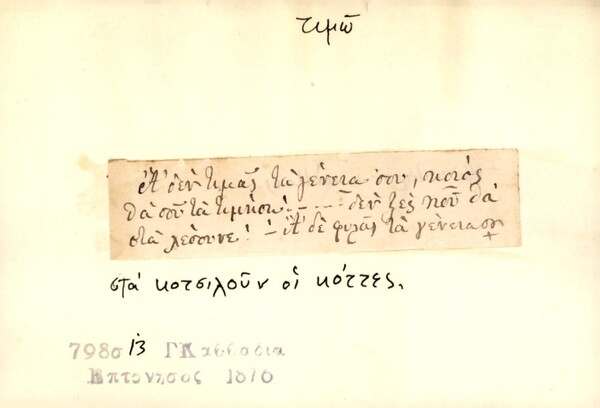 τιμῶ
Ἄ δὲν τιμᾷς τὰ γένεια σου, ποιός
θὰ σοῦ τὰ τιμήσῃ! – . – – δὲν ξὲς ποῦ θὰ
στὰ χέσουνε! – Ἄ δὲ φυλᾷς τὰ γένεια σου +
στά κοτσιλοῦν οἱ κόττες.
798σ 13 Γ Καββαδία
Επτονησος 1876